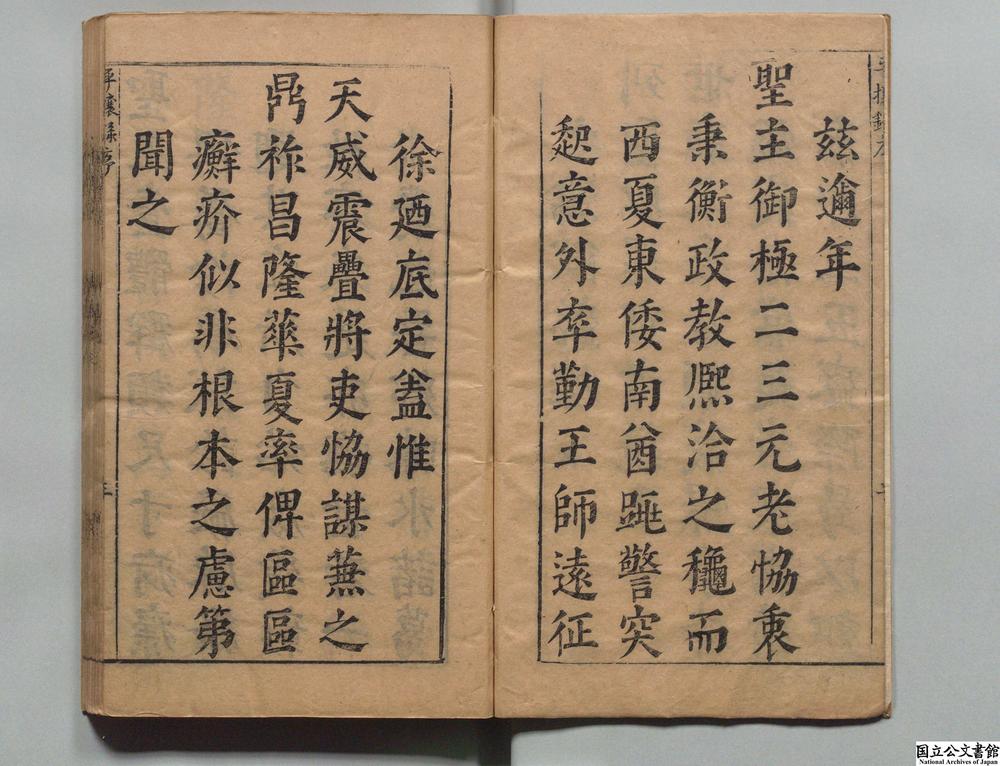 茲邇年
聖主御極二三元老恊衷
秉衡政教熈洽之龝而
西夏東倭南酋踵警突
起意外卒勤王師遠征
徐廼底定蓋惟
天威震疊將吏恊謀蕪之
鼎祚昌隆華夏率俾區區
癬疥似非根本之慮第
聞之
平攘錄序
国立公文書館
National Archives of Japan